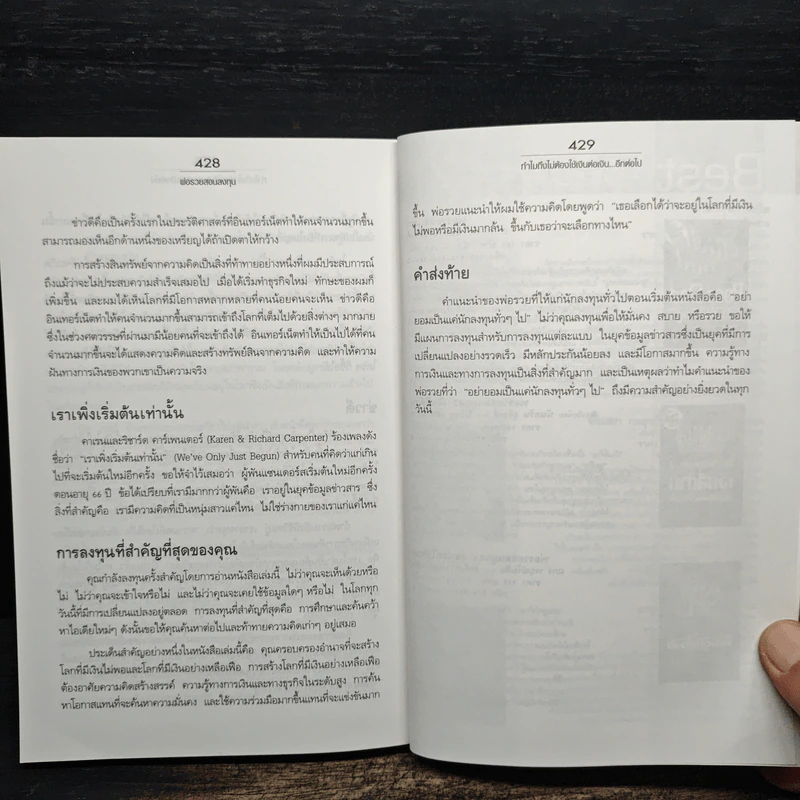 428
พ่อรวยสอนลงทุน
ข่าวดีคือเป็นครั้งแรกในประวัติศาสตร์ที่อินเทอร์เน็ตทำให้คนจำนวนมากขึ้น
สามารถมองเห็นอีกด้านหนึ่งของเหรียญได้ถ้าเปิดตาให้กว้าง
การสร้างสินทรัพย์จากความคิดเป็นสิ่งที่ท้าทายอย่างหนึ่งที่ผมมีประสบการณ์
ถึงแม้ว่าจะไม่ประสบความสำเร็จเสมอไป เมื่อได้เริ่มทำธุรกิจใหม่ ทักษะของผมก็
เพิ่มขึ้น และผมได้เห็นโลกที่มีโอกาสหลากหลายที่คนน้อยคนจะเห็น ข่าวดีคือ
อินเทอร์เน็ตทำให้คนจำนวนมากขึ้นสามารถเข้าถึงโลกที่เต็มไปด้วยสิ่งต่างๆ มากมาย
ซึ่งในช่วงศตวรรษที่ผ่านมามีน้อยคนที่จะเข้าถึงได้ อินเทอร์เน็ตทำให้เป็นไปได้ที่คน
จำนวนมากขึ้นจะได้แสดงความคิดและสร้างทรัพย์สินจากความคิด และทำให้ความ
ฝันทางการเงินของพวกเขาเป็นความจริง
เราเพิ่งเริ่มต้นเท่านั้น
คาเรนและริชาร์ด คาร์เพนเตอร์ (Karen & Richard Carpenter) ร้องเพลงดัง
ชื่อว่า "เราเพิ่งเริ่มต้นเท่านั้น" (We've Only Just Begun) สำหรับคนที่คิดว่าแก่เกิน
ไปที่จะเริ่มต้นใหม่อีกครั้ง ขอให้จำไว้เสมอว่า ผู้พันแซนเดอร์สเริ่มต้นใหม่อีกครั้ง
ตอนอายุ 66 ปี ข้อได้เปรียบที่เรามีมากกว่าผู้พันคือ เราอยู่ในยุคข้อมูลข่าวสาร ซึ่ง
สิ่งที่สำคัญคือ เรามีความคิดที่เป็นหนุ่มสาวแค่ไหน ไม่ใช่ร่างกายของเราแก่แค่ไหน
การลงทุนที่สำคัญที่สุดของคุณ
คุณกำลังลงทุนครั้งสำคัญโดยการอ่านหนังสือเล่มนี้ ไม่ว่าคุณจะเห็นด้วยหรือ
ไม่ ไม่ว่าคุณจะเข้าใจหรือไม่ และไม่ว่าคุณจะเคยใช้ข้อมูลใดๆ หรือไม่ ในโลกทุก
วันนี้ที่มีการเปลี่ยนแปลงอยู่ตลอด การลงทุนที่สำคัญที่สุดคือ การศึกษาและค้นคว้า
หาไอเดียใหม่ๆ ดังนั้นขอให้คุณค้นหาต่อไปและท้าทายความคิดเก่าๆ อยู่เสมอ
ประเด็นสำคัญอย่างหนึ่งในหนังสือเล่มนี้คือ คุณครอบครองอำนาจที่จะสร้าง
โลกที่มีเงินไม่พอและโลกที่มีเงินอย่างเหลือเฟือ การสร้างโลกที่มีเงินอย่างเหลือเฟือ
ต้องอาศัยความคิดสร้างสรรค์ ความรู้ทางการเงินและทางธุรกิจในระดับสูง การค้น
หาโอกาสแทนที่จะค้นหาความมั่นคง และใช้ความร่วมมือมากขึ้นแทนที่จะแข่งขันมาก
429
ทำไมถึงไม่ต้องใช้เงินต่อเงิน...อีกต่อไป
ขึ้น พ่อรวยแนะนำให้ผมใช้ความคิดโดยพูดว่า "เธอเลือกได้ว่าจะอยู่ในโลกที่มีเงิน
ไม่พอหรือมีเงินมากล้น ขึ้นกับเธอว่าจะเลือกทางไหน"
คำส่งท้าย
คำแนะนำของพ่อรวยที่ให้แก่นักลงทุนทั่วไปตอนเริ่มต้นหนังสือคือ "อย่า
ยอมเป็นแค่นักลงทุนทั่วๆ ไป" ไม่ว่าคุณลงทุนเพื่อให้มั่นคง สบาย หรือรวย ขอให้
มีแผนการลงทุนสำหรับการลงทุนแต่ละแบบ ในยุคข้อมูลข่าวสารซึ่งเป็นยุคที่มีการ
เปลี่ยนแปลงอย่างรวดเร็ว มีหลักประกันน้อยลง และมีโอกาสมากขึ้น ความรู้ทาง
การเงินและทางการลงทุนเป็นสิ่งที่สำคัญมาก และเป็นเหตุผลว่าทำไมคำแนะนำของ
พ่อรวยที่ว่า "อย่ายอมเป็นแค่นักลงทุนทั่วๆ ไป" ถึงมีความสำคัญอย่างยิ่งยวดในทุก
วันนี้